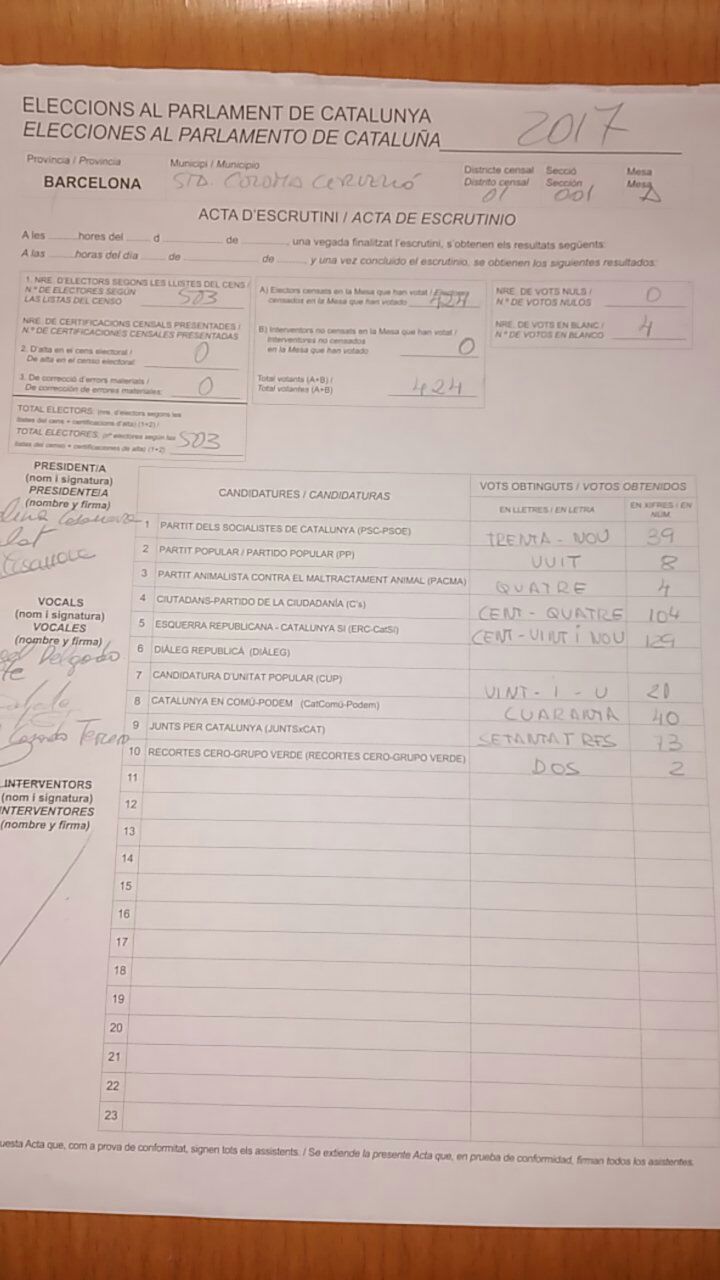 ELECCIONS AL PARLAMENT DE CATALUNYA
ELECCIONES AL PARLAMENTO DE CATALUÑA 2017
Provincia / Provincia Municipi / Municipio Districte censal Secció Mesa
Distrito censal Sección Mesa
BARCELONA STA. COLOMA CERVELLÓ 01 001 A
ACTA D'ESCRUTINI / ACTA DE ESCRUTINIO
A les hores del d de , una vegada finalitzat l'escrutini, s'obtenen els resultats següents:
A las horas del día de de y una vez concluido el escrutinio, se obtienen los siguientes resultados:
1. NRE. D'ELECTORS SEGONS LES LLISTES DEL CENS /
N.º DE ELECTORES SEGÚN
LAS LISTAS DEL CENSO 503
NRE. DE CERTIFICACIONS CENSALS PRESENTADES /
N.º DE CERTIFICACIONES CENSALES PRESENTADAS
2. D'alta en el cens electoral /
De alta en el censo electoral: 0
3. De correcció d'errors materials /
De corrección de errores materiales: 0
TOTAL ELECTORS: (nre. d'electors segons les
llistes del cens + certificacions d'alta) (1+2) /
TOTAL ELECTORES: (nº electores según las
listas del censo + certificaciones de alta) (1+2) 503
A) Electors censats en la Mesa que han votat / Electores
censados en la Mesa que han votado 424
B) Interventors no censats en la Mesa que han votat /
Interventores no censados
en la Mesa que han votado 0
Total votants (A+B) /
Total votantes (A+B) 424
NRE. DE VOTS NULS /
N.º DE VOTOS NULOS 0
NRE. DE VOTS EN BLANC /
N.º DE VOTOS EN BLANCO 4
PRESIDENT/A
(nom i signatura)
PRESIDENTE/A
(nombre y firma)
Casanova
VOCALS
(nom i signatura)
VOCALES
(nombre y firma)
Delgado
Tercero
INTERVENTORS
(nom i signatura)
INTERVENTORES
(nombre y firma)
CANDIDATURES / CANDIDATURAS VOTS OBTINGUTS / VOTOS OBTENIDOS
EN LLETRES / EN LETRA EN XIFRES / EN NÚM.
1 PARTIT DELS SOCIALISTES DE CATALUNYA (PSC-PSOE) TRENTA-NOU 39
2 PARTIT POPULAR / PARTIDO POPULAR (PP) VUIT 8
3 PARTIT ANIMALISTA CONTRA EL MALTRACTAMENT ANIMAL (PACMA) QUATRE 4
4 CIUTADANS-PARTIDO DE LA CIUDADANÍA (C's) CENT-QUATRE 104
5 ESQUERRA REPUBLICANA - CATALUNYA SÍ (ERC-CatSí) CENT-VINT I NOU 129
6 DIÀLEG REPUBLICÀ (DIÀLEG)
7 CANDIDATURA D'UNITAT POPULAR (CUP) VINT-I-U 21
8 CATALUNYA EN COMÚ-PODEM (CatComú-Podem) CUARANTA 40
9 JUNTS PER CATALUNYA (JUNTSxCAT) SETANTATRES 73
10 RECORTES CERO-GRUPO VERDE (RECORTES CERO-GRUPO VERDE) DOS 2
11
12
13
14
15
16
17
18
19
20
21
22
23
uesta Acta que, com a prova de conformitat, signen tots els assistents. / Se extiende la presente Acta que, en prueba de conformidad, firman todos los asistentes.